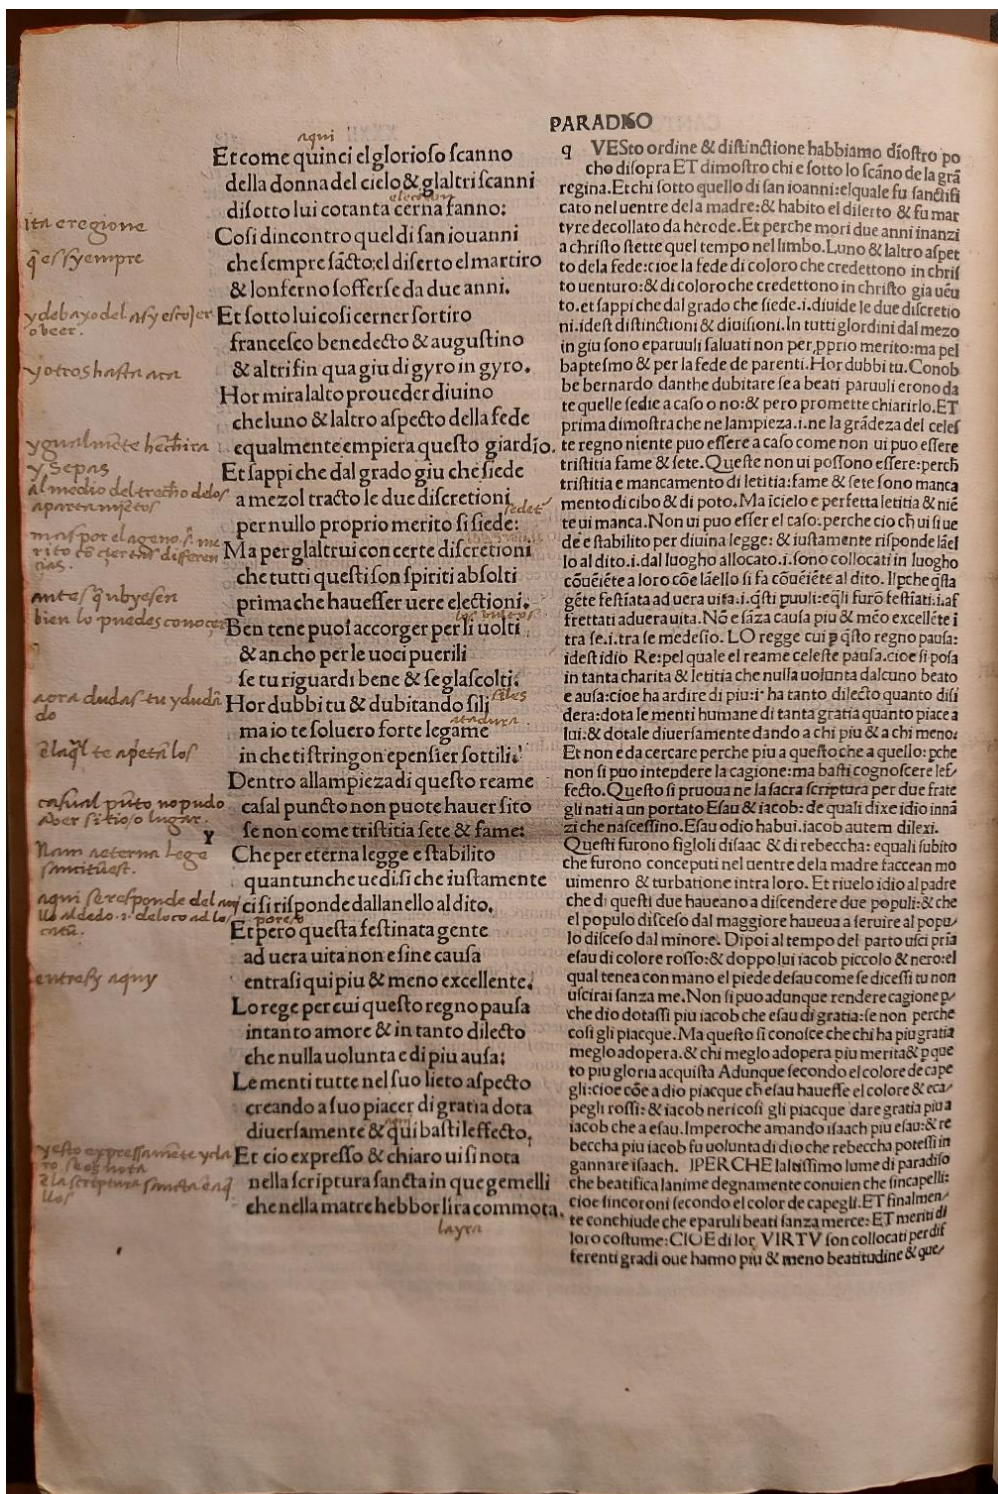 PARADISO
aqui
Et come quinci el glorioso scanno
della donna del cielo & glaltri scanni
election
disotto lui cotanta cerna fanno:
Cosi dincontro quel di san iouanni
che sempre sãcto: el diserto el martiro
& lonferno sofferse da due anni.
Et sotto lui cosi cerner sortiro
francesco benedecto & augustino
& altri fin qua giu di gyro in gyro.
Hor mira lalto proueder diuino
che luno & laltro aspecto della fede
equalmente empiera questo giardĩo.
Et sappi che dal grado giu che siede
a mezol tracto le due discretioni
sedet
per nullo proprio merito si siede:
Ma per glaltrui con certe discretioni
che tutti questi son spiriti absolti
prima che hauesser uere electioni.
los vultos
Ben tene puoi accorger per li uolti
& ancho per le uoci puerili
se tu riguardi bene & se glascolti.
siles
Hor dubbi tu & dubitando sili
atadura
ma io te soluero forte legame
in che ti stringon e pensier sottili.
Dentro allampieza di questo reame
casal puncto non puote hauer sito
se non come tristitia sete & fame:
Y
Che per eterna legge e stabilito
quantunche uedi si che iustamente
ci si risponde dallanello al dito.
por eso
Et pero questa festinata gente
ad uera uita non e sine causa
entrasi qui piu & meno excellente.
Lo rege per cui questo regno pausa
in tanto amore & in tanto dilecto
che nulla uolunta e di piu ausa;
Le menti tutte nel suo lieto aspecto
creando a suo piacer di gratia dota
diuersamente & qui basti leffecto.
Et cio expresso & chiaro ui si nota
nella scriptura sancta in que gemelli
che nella matre hebbor lira commota.
layra
ita eregione
q̃ es syempre
y debaxo del asy escojer
o veer.
y otros hasta aca
ygualmẽte hẽchira
y sepas
al medio del trecho de los
apartamiẽtos
mas por el ageno
rito cõ çiertas differen
çias.
antes q̃ ubyesen
bien lo puedes conoçer
aora dudas tu y dudã
do
casual pũto no pudo
aver sitio o lugar.
Nam aeterna lege
aqui se responde del any
llo al dedo .i. del loco ad lo
catũ.
entrasy aquy
y esto expressamẽte y cla
ro se os nota
ẽ la scriptura sancta ẽ aq̃
llos
q VESto ordine & distinctione habbiamo dĩostro po
cho disopra ET dimostro chi e sotto lo scãno de la grã
regina. Et chi sotto quello di san ioanni: elquale fu sanctifi
cato nel uentre de la madre: & habito el diserto & fu mar
tyre decollato da herode. Et perche mori due anni inanzi
a christo stette quel tempo nel limbo. Luno & laltro aspet
to dela fede: cioe la fede di coloro che credettono in chris
to uenturo: & di coloro che credettono in christo gia uẽu
to. et sappi che dal grado che siede .i. diuide le due discretio
ni. idest distinctioni & diuisioni. In tutti glordini dal mezo
in giu sono eparuuli saluati non per pprio merito: ma pel
baptesmo & per la fede de parenti. Hor dubbi tu. Conob
be bernardo danthe dubitare se a beati paruuli erono da
te quelle sedie a caso o no: & pero promette chiarirlo. ET
prima dimostra che ne lampieza .i. ne la grãdeza del celes
te regno niente puo essere a caso come non ui puo essere
tristitia fame & sete. Queste non ui possono essere: perch
tristitia e mancamento di letitia: fame & sete sono manca
mento di cibo & di poto. Ma ĩcielo e perfetta letitia & niẽ
te ui manca. Non ui puo esser el caso. perche cio ch̃ ui si ue
de e stabilito per diuina legge: & iustamente risponde lãel
lo al dito .i. dal luogho allocato .i. sono collocati in luogho
cõuẽiẽte a loro cõe lãello si fa cõuẽiẽte al dito. Ilpche q̃sta
gẽte festĩata ad uera uita .i. q̃sti puuli: eq̃li furõ festĩati .i. af
frettati aduera uita. Nõ e sãza causa piu & mẽo excellẽte i
tra se .i. tra se medesĩo. LO regge cui p q̃sto regno pausa:
idest idio Re: pel quale el reame celeste pausa. cioe si posa
in tanta charita & letitia che nulla uolunta dalcuno beato
e ausa: cioe ha ardire di piu: i ha tanto dilecto quanto disi
dera: dota le menti humane di tanta gratia quanto piace a
lui: & dotale diuersamente dando a chi piu & a chi meno:
Et non e da cercare perche piu a questo che a quello: pche
non si puo intendere la cagione: ma basti cognoscere lef/
fecto. Questo si pruoua ne la sacra scriptura per due frate
gli nati a un portato Esau & iacob: de quali dixe idio innã
zi che nascessino. Esau odio habui. iacob autem dilexi.
Questi furono figloli disaac & di rebeccha: equali subito
che furono conceputi nel uentre dela madre faccean mo
uimenro & turbatione intra loro. Et riuelo idio al padre
che di questi due haueano a discendere due populi: & che
el populo disceso dal maggiore haueua a seruire al popu/
lo disceso dal minore. Dipoi al tempo del parto usci priã
esau di colore rosso: & doppo lui iacob piccolo & nero: el
qual tenea con mano el piede desau come se dicessi tu non
uscirai sanza me. Non si puo adunque rendere cagione p/
che dio dotassi piu iacob che esau di gratia: se non perche
cosi gli piacque. Ma questo si conosce che chi ha piu gratia
meglo adopera. & chi meglo adopera piu merita & p que
to piu gloria acquista Adunque secondo el colore de cape
gli: cioe cõe a dio piacque ch̃ esau hauesse el colore & eca/
pegli rossi: & iacob nericosi gli piacque dare gratia piu a
iacob che a esau. Imperoche amando isaach piu esau: & re
beccha piu iacob fu uolunta di dio che rebeccha potessi in
gannare isaach. IPERCHE laltissimo lume di paradiso
che beatifica lanime degnamente conuien che sincapelli:
cioe sincoroni secondo el color de capegli. ET finalmen/
te conchiude che eparuli beati sanza merce: ET meriti di
loro costume: CIOE di lor VIRTV son collocati per dif
ferenti gradi oue hanno piu & meno beatitudine & que/